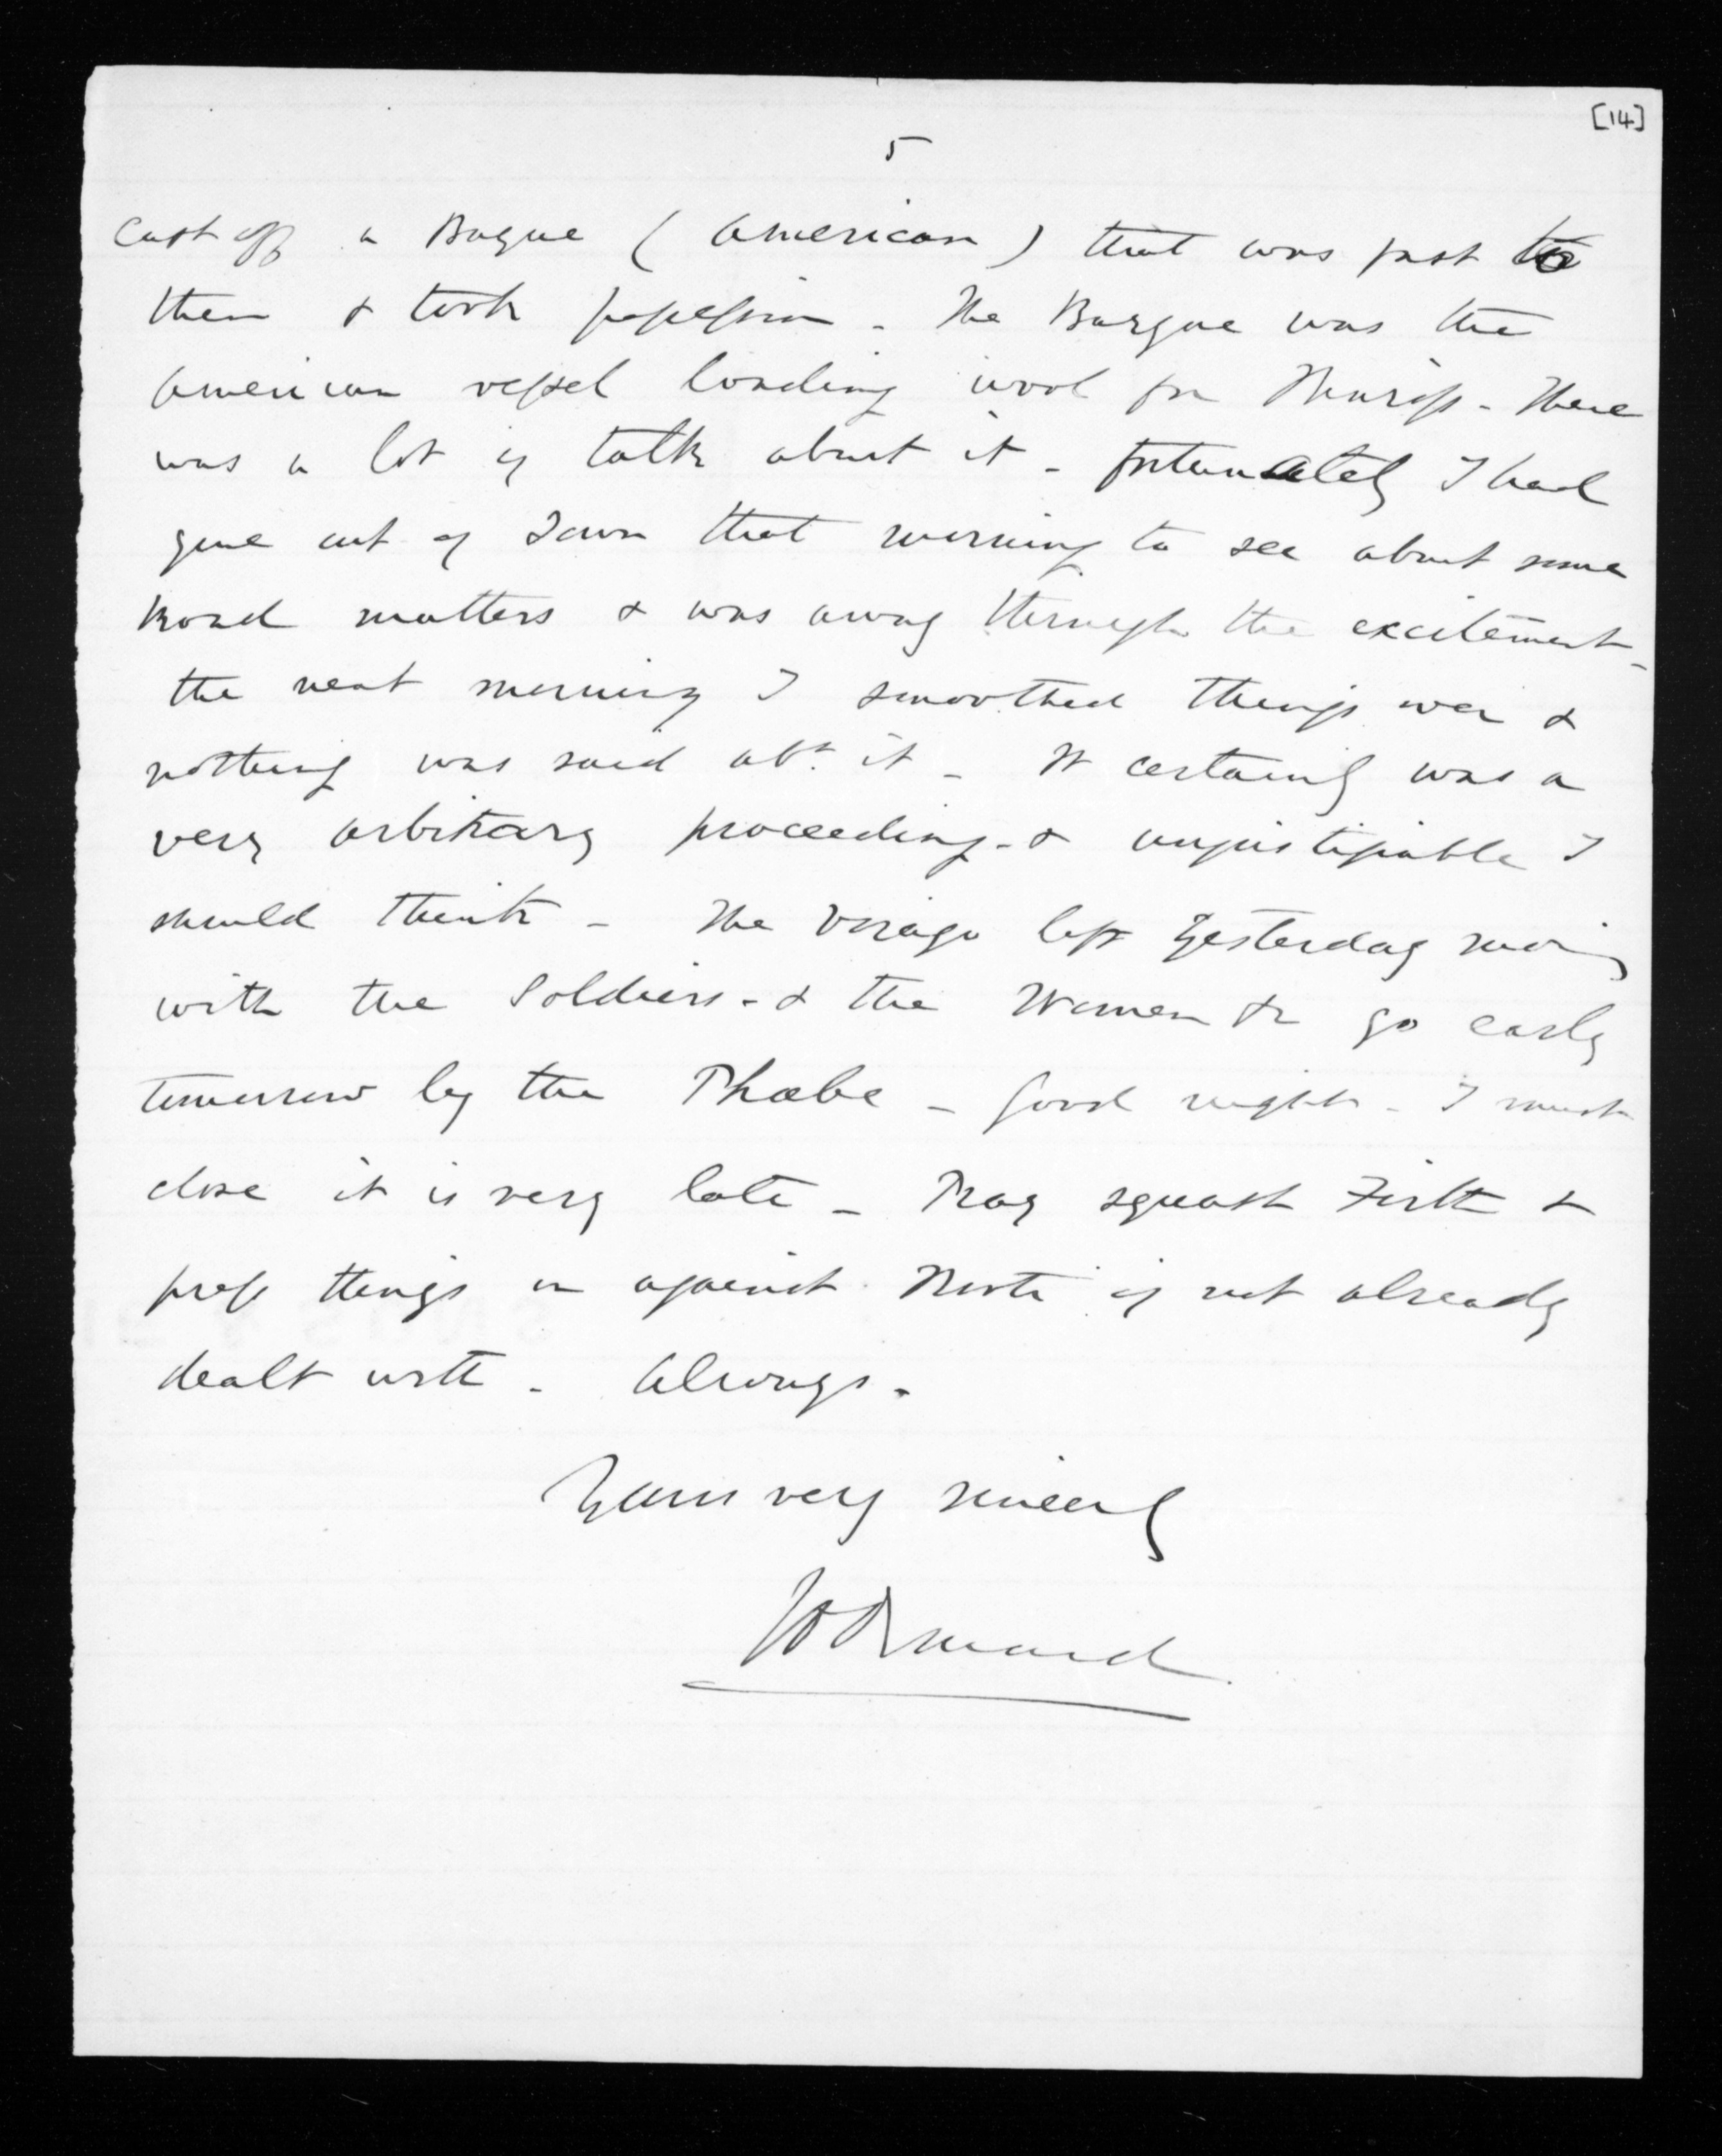 [14]
5
cast off a Barque (American) that was fast to
them & took possession - The Barque was the
American vessel loading wool for - There
was a lot of talk about it - fortunately I had
gone out of Town that morning to see about some
Road matters & was away through the excitement -
the next morning I smoothed things over &
nothing was said abt. it - It certainly was a
very arbitrary proceeding - & unjustifiable I
should think - The Virago left yesterday
with the Soldiers - & the Women &c go early
tomorrow by the Phoebe - Good night - I must
close it is very late - Pray squash Firth &
press things on against if not already
dealt with - Always -
Yours very sincerely